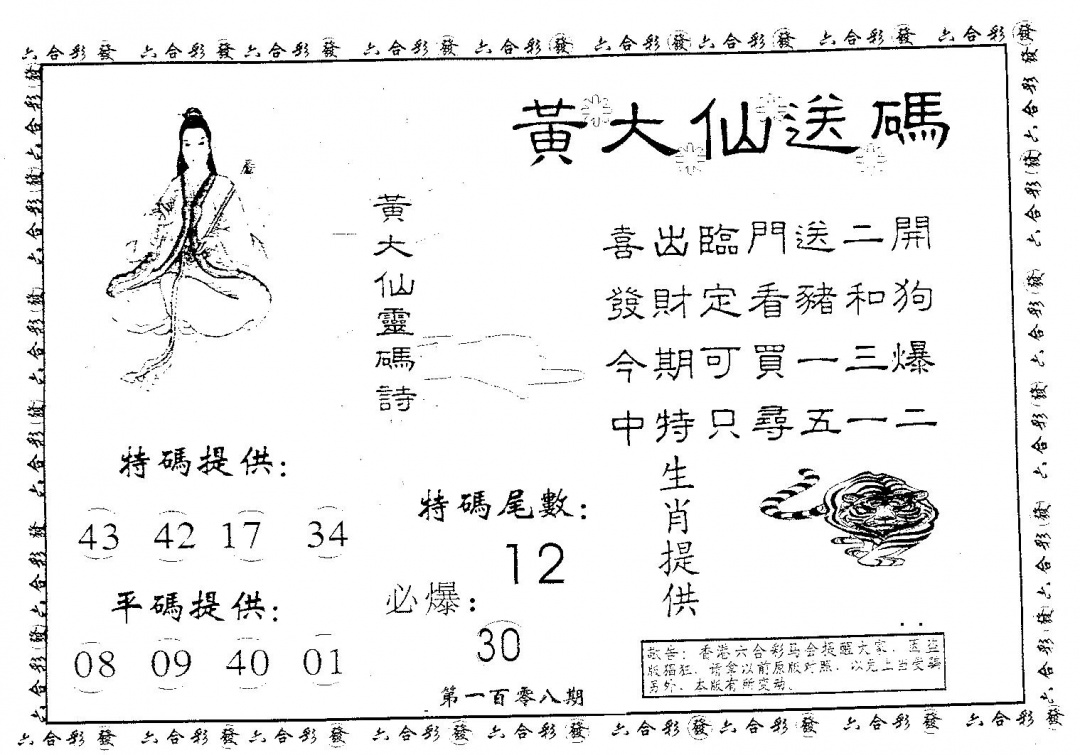 六合彩發 六合彩發 六合彩發 六合彩發 六合彩發 六合彩發 六合彩發 六合彩發 六合彩發
黃大仙送碼
黃大仙靈碼詩
喜出臨門送二開
發財定看豬和狗
今期可買一三爆
中特只尋五一二
特碼提供：
43 42 17 34
平碼提供：
08 09 40 01
特碼尾數：
12
必爆：
30
第一百零八期
生肖提供
敬告：香港六合彩马会提醒大家，因盗
版猖狂，请拿以前原版对照，以免上当受骗
另外，本版有所变动。
六合彩發 六合彩發 六合彩發 六合彩發 六合彩發 六合彩發 六合彩發 六合彩發 六合彩發